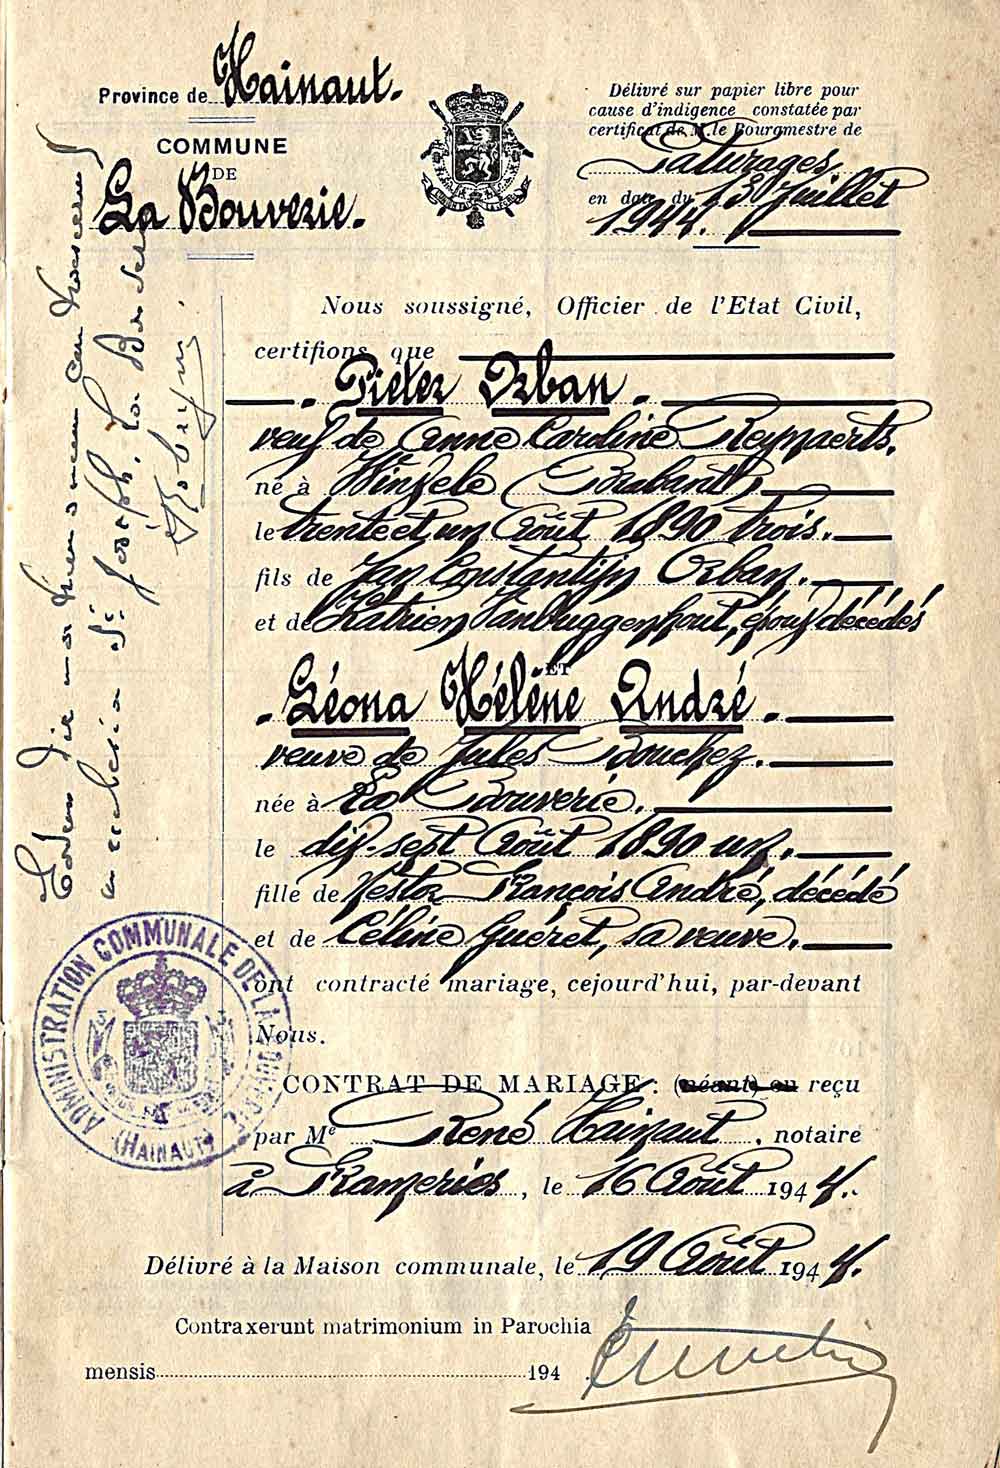 Province de Hainaut.
COMMUNE
DE
La Bouverie.
Délivré sur papier libre pour
cause d'indigence constatée par
certificat de M. le Bourgmestre de
Paturages
en date du 13 Juillet
1944.
Nous soussigné, Officier de l'Etat Civil,
certifions que
Pieter Orban.
veuf de Anne Caroline Reynaerts.
né à Winxele (Brabant),
le trente et un Août 1890 trois.
fils de Jan Constantijn Orban.
et de Katrien Vanbuggenhout, époux décédés
ET
Léona Hélène André.
veuve de Jules Bouchez.
née à La Bouverie.
le dix-sept Août 1890 un.
fille de Nestor François André, décédé
et de Céline Guéret, sa veuve.
ont contracté mariage, cejourd'hui, par-devant
Nous.
CONTRAT DE MARIAGE : (néant) ou reçu
par Me René Hainaut, notaire
à Frameries, le 16 Août 1944.
Délivré à la Maison communale, le 19 Août 1944.
Contraxerunt matrimonium in Parochia
mensis 194
Eadem die
in ecclesia St Joseph, La Bouverie
ADMINISTRATION COMMUNALE DE LA BOUVERIE
(HAINAUT)